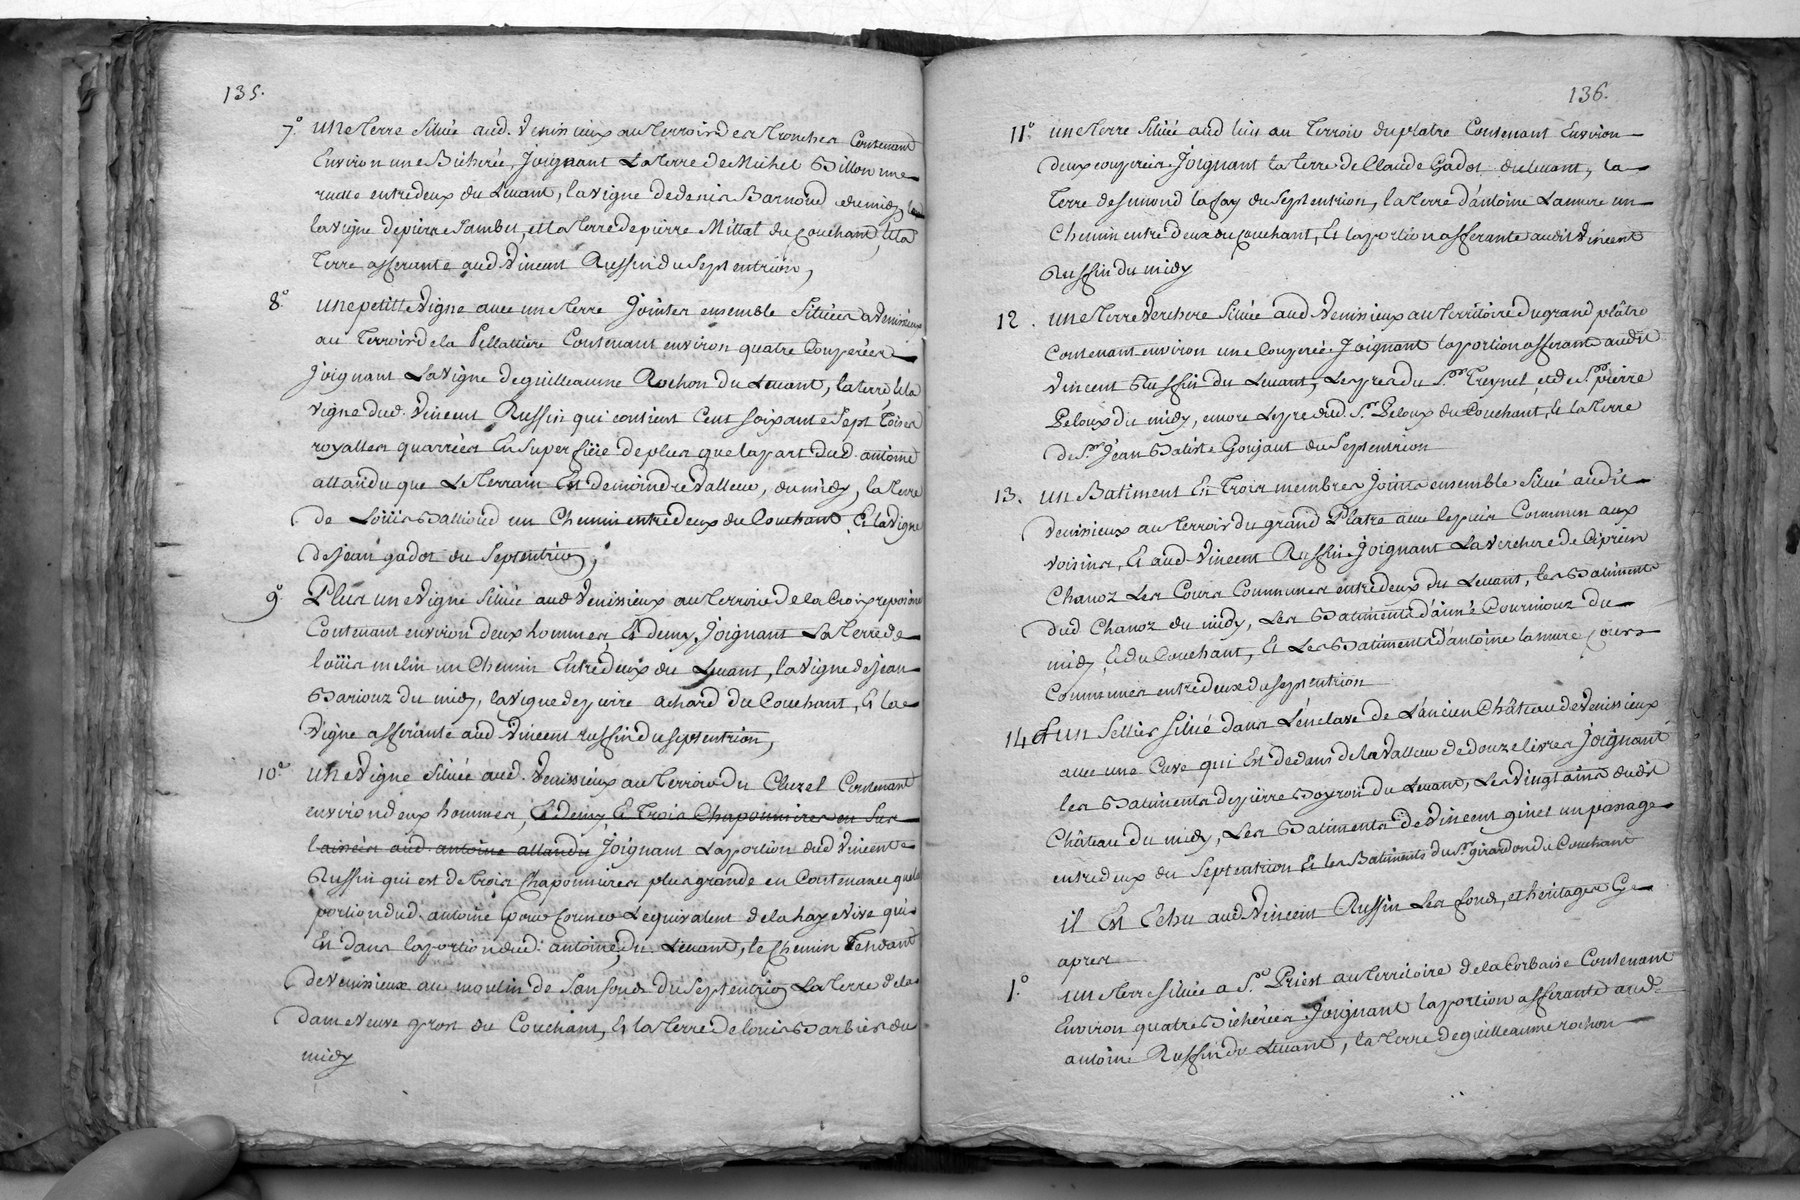 135.
7° une terre située aud. Venissieux au terroir des tronches Contenant
Environ une Bicherée, Joignant La terre de Michel Billon une
ruette entredeux du Levant, la vigne de denis Barnoud du midy, la
la vigne de pierre Jambet, et la terre de pierre Mittal du Couchant, et la
Terre afferante aud Vincent Russin du Septentrion,
8° une petitte Vigne avec une terre Jointes ensemble Situées a Venissieux
au Terroir de la Pellattiere Contenant environ quatre Couperées
Joignant La vigne de guilleaume Rochon du Levant, la terre et la
vigne dud. Vincent Russin qui contient Cent soixante Sept Toises
royalles quarrées En Superficie de plus que la part dud. antoine
attandu que Le terrain Est de moindre valleur, du midy, la terre
de Loüis Ballioud un Chemin entredeux du Couchant Et la Vigne
de Jean gadot du Septentrion,
9° Plus une Vigne située aud Venissieux au terroir de la Croix
Contenant environ deux hommes Et demy, Joignant La terre de
loüis melin un Chemin Entredeux du Levant, la vigne de Jean
Bariouz du midy, la vigne de pierre achard du Couchant, Et la
Vigne afferante aud Vincent russin du septentrion,
10° une Vigne située aud. Venissieux au terroir du Cluzel Contenant
environ deux hommes, Et demy, Et Trois Chaponnieres en sus
laissées aud. antoine attandu Joignant La portion dud Vincent
Russin qui est de trois Chaponnieres plus grande en Contenance que la
portion dud. antoine pour fournir L'equivalent de la haye Vive qui
Est dans la portion dud. antoine, du Levant, le Chemin Tendant
de Venissieux au moulin de Sanfonds du Septentrion La terre de la
dame Veuve gros du Couchant, Et la terre de louis Barbier du
midy
136.
11° une terre située aud lieu au Terroir du platre Contenant Environ
deux couperées Joignant la terre de Claude Gadot du levant, la
Terre de Simond lafay du Septentrion, la terre d'antoine Lamure un
Chemin entredeux du Couchant, Et la portion afferante audit Vincent
Russin du midy
12. une terre Verchere située aud Venissieux au territoire du grand plâtre
Contenant environ une Couperée Joignant la portion afferante audit
Vincent Russin du Levant, Le pred du Sr. Treynet, et de Sr. pierre
Peloux du midy, encore Le pré dud. Sr. Peloux du Couchant, Et la terre
de Sr. Jean Batiste Goujaut du Septentrion
13. un Batiment En trois membres Joints ensemble Situé audit
Venissieux au terroir du grand Platre avec le puis Commun aux
voisins, Et aud Vincent Russin Joignant La verchere de Ciprien
Chanoz Les Cours Communes entredeux du Levant, les Batiments
dud Chanoz du midy, Les Batiments d'aimé Courniouz du
midy Et du Couchant, Et Les Batiments d'antoine lamure Cours
Communes entredeux du septentrion
14 Et un Sellier situé dans L'énclave de L'ancien Château de Venissieux
avec une Cuve qui Est dedans de la Valleur de douze livres Joignant
les Batiments de pierre Boyron du Levant, Les Vingtains dudit
Château du midy, Les Batiments de Vincent ginet un passage
entredeux du Septentrion Et les Batiments du Sr. girardon du Couchant
il Est Echu aud Vincent Russin Les fonds, et heritages Cy
apres
1° une terre située a St. Priest au territoire de la Corbaise Contenant
Environ quatre Bicherées Joignant la portion afferante aud
antoine Russin du Levant, la terre de guilleaume rochon